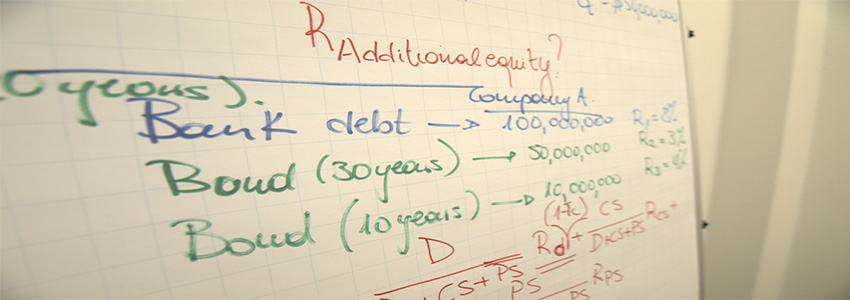 R Additional equity?
0 years).
Company A.
Bank debt → 100,000,000 R₁ = 2%
Bond (30 years) → 50,000,000 R₂ = 3%
Bond (10 years) → 10,000,000 R₃ =
D (1-Tc) CS
Rd + D+CS+PS RCS +
CS + PS PS RPS
PS